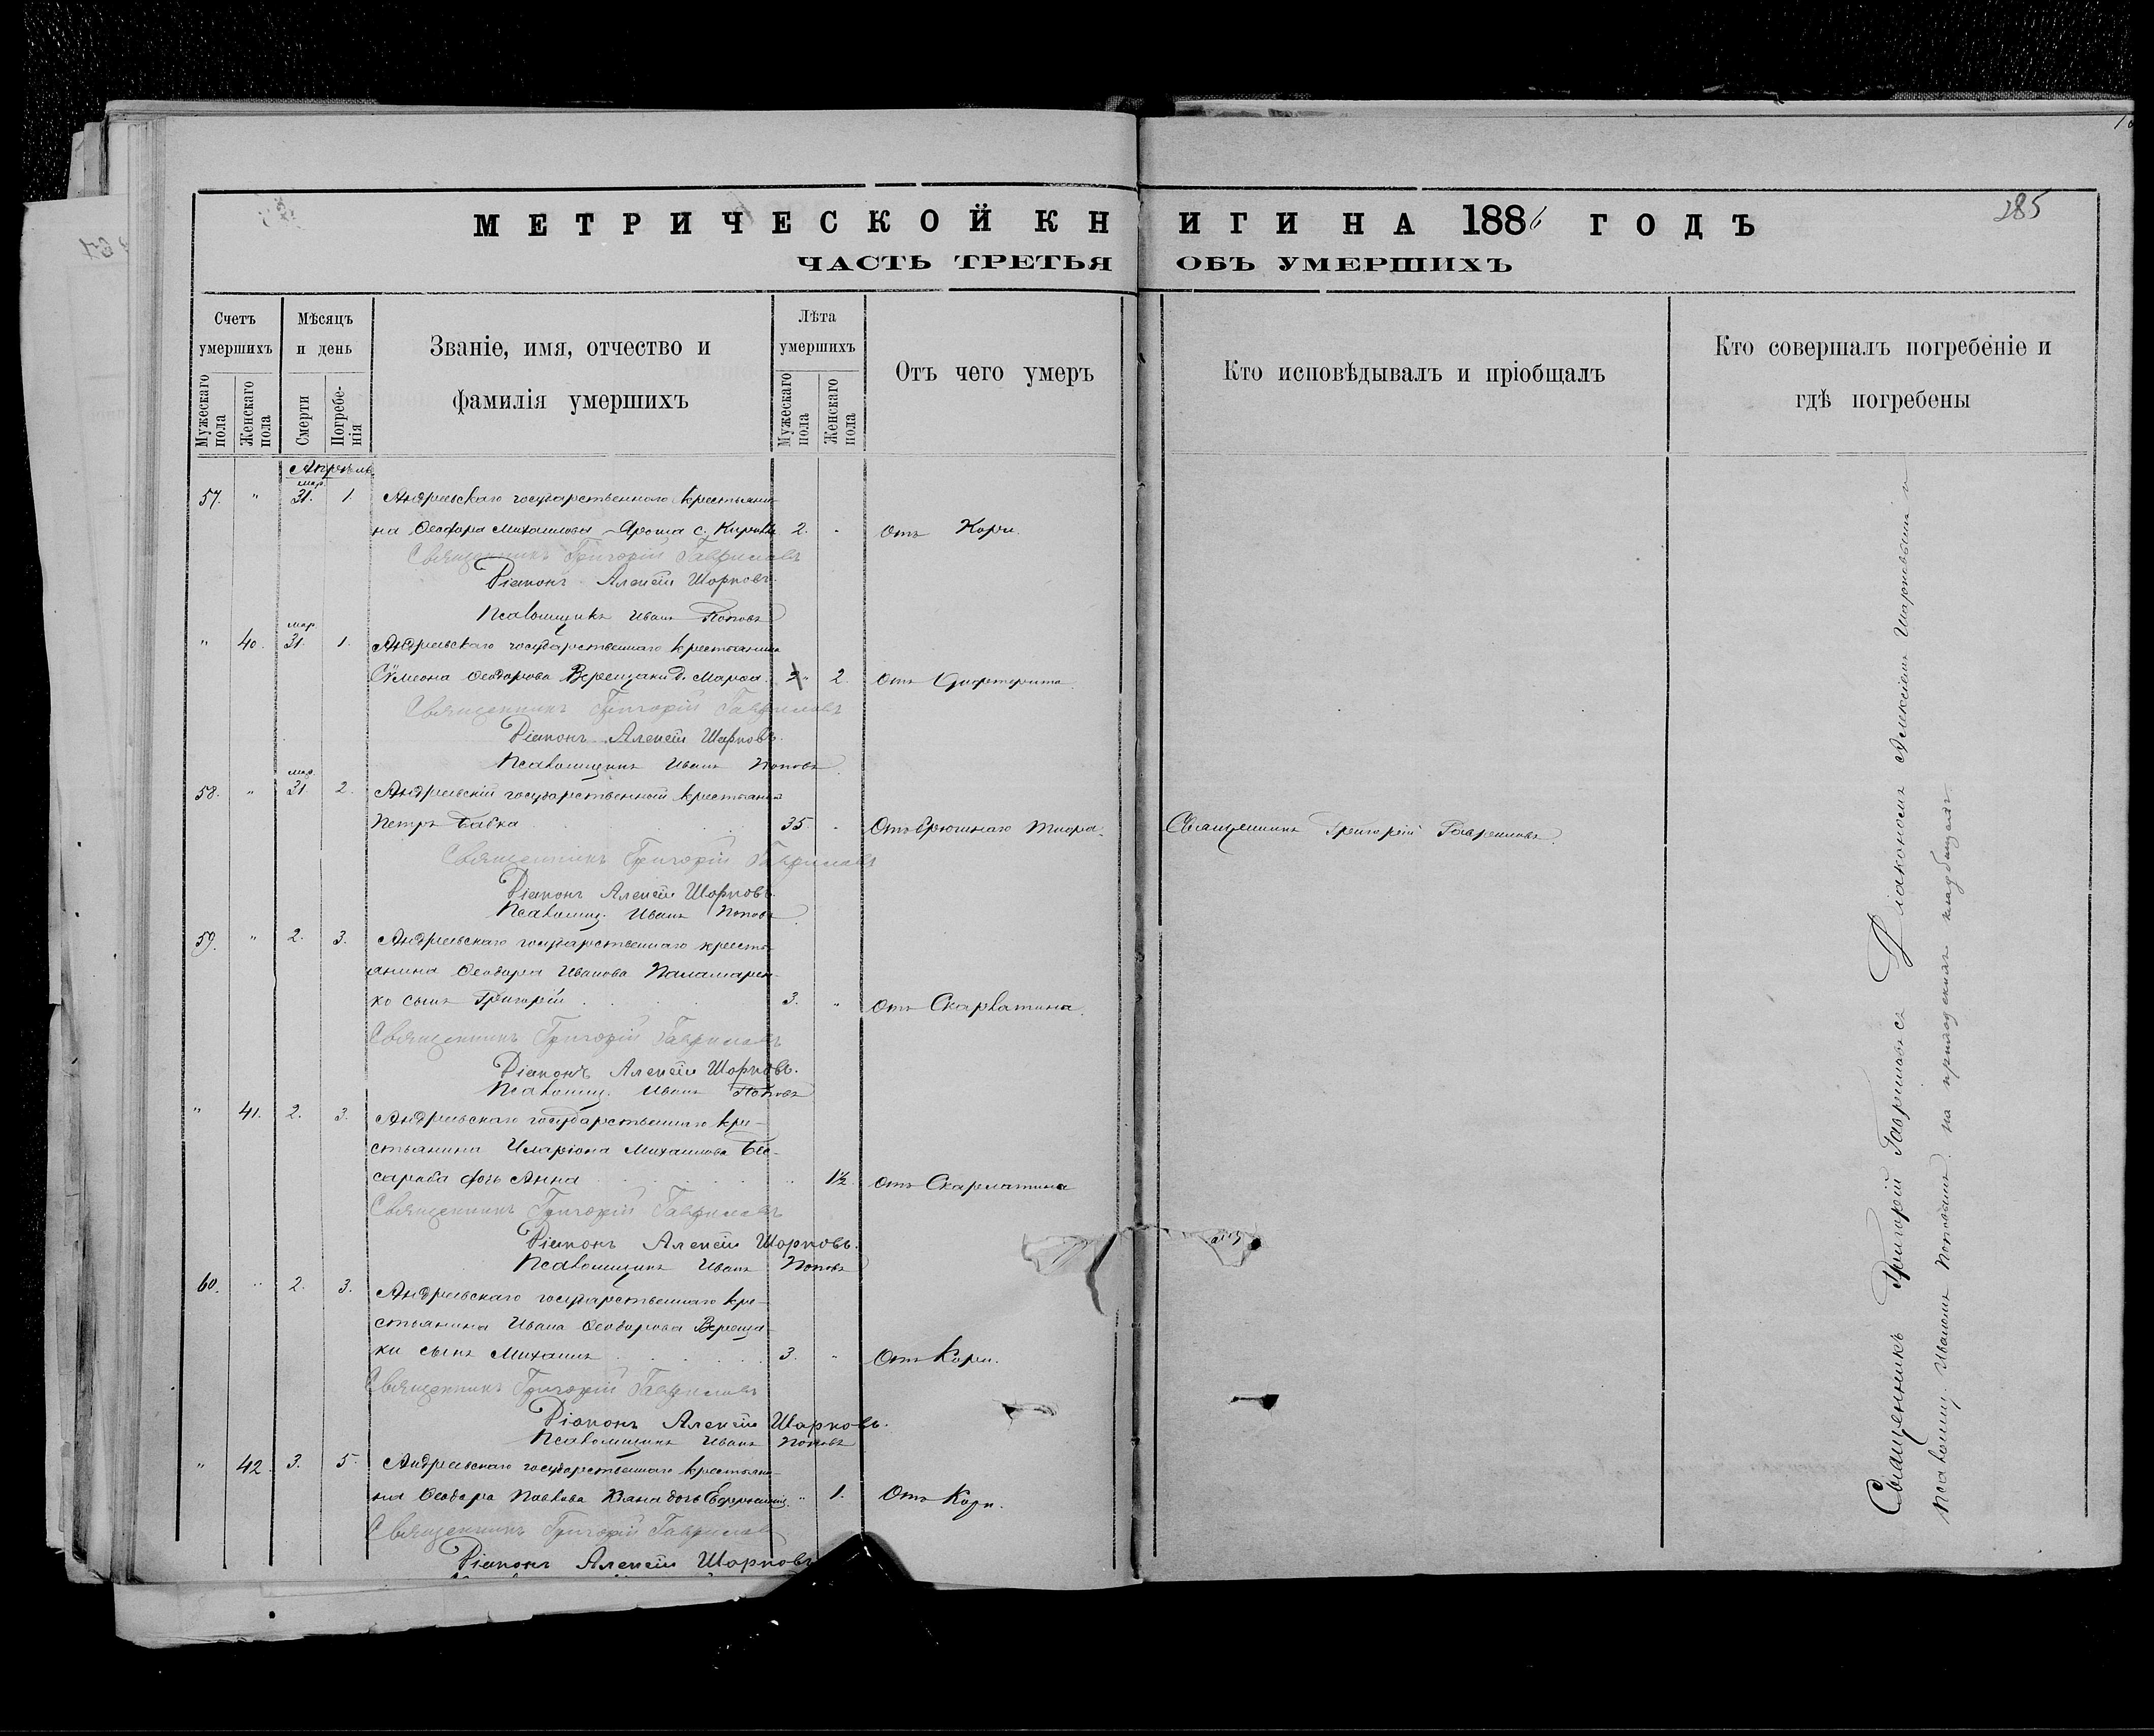 285
МЕТРИЧЕСКОЙ КНИГИ НА 1886 ГОДЪ
ЧАСТЬ ТРЕТЬЯ ОБЪ УМЕРШИХЪ
Счетъ умершихъ
Мужескаго пола
Женскаго пола
Мѣсяцъ и день
Смерти
Погребенія
Званіе, имя, отчество и
фамилія умершихъ
Лѣта умершихъ
Мужескаго пола
Женскаго пола
Отъ чего умеръ
Кто исповѣдывалъ и пріобщалъ
Кто совершалъ погребеніе и
гдѣ погребены
Апрѣль
мар.
57. " 31. 1. Андреевскаго государственнаго крестьяни-
на Ѳеодора Михаилова Яроша с. 2. " Отъ Кори.
Священникъ Григорій Гавриловъ
Діаконъ Алексѣй Шарковъ.
Псаломщикъ Иванъ Поповъ
мар.
" 40. 31. 1. Андреевскаго государственнаго крестьянина
Сѵмеона Ѳеодорова Верещаки д. Марѳа. " 2. Отъ Дифтерита.
Священникъ Григорій Гавриловъ
Діаконъ Алексѣй Шарковъ.
Псаломщикъ Иванъ Поповъ
мар.
58. " 31 2. Андреевскій государственный крестьянинъ
Петръ Бабка 35. " Отъ брюшнаго тифа. Священникъ Григорій Гавриловъ.
Священникъ Григорій Гавриловъ
Діаконъ Алексѣй Шарковъ.
Псаломщ. Иванъ Поповъ
59. " 2. 3. Андреевскаго государственнаго кресть-
янина Ѳеодора Иванова Паламарен-
ко сынъ Григорій 3. " Отъ Скарлатина.
Священникъ Григорій Гавриловъ
Діаконъ Алексѣй Шарковъ.
Псаломщ. Иванъ Поповъ
" 41. 2. 3. Андреевскаго государственнаго кре-
стьянина Иларіона Михаилова Бес-
сараба дочь Анна " 1½ Отъ Скарлатина
Священникъ Григорій Гавриловъ
Діаконъ Алексѣй Шарковъ.
Псаломщикъ Иванъ Поповъ
60. " 2. 3. Андреевскаго государственнаго кре-
стьянина Ивана Ѳеодорова Вереща-
ки сынъ Михаилъ 3. " Отъ Кори.
Священникъ Григорій Гавриловъ
Діаконъ Алексѣй Шарковъ.
Псаломщикъ Иванъ Поповъ
" 42. 3. 5. Андреевскаго государственнаго крестьяни-
на Ѳеодора Павлова дочь " 1. Отъ Кори.
Священникъ Григорій Гавриловъ
Діаконъ Алексѣй Шарковъ
Священникъ Григорій Гавриловъ съ Діакономъ Алексіемъ Шарковымъ и
псаломщ. Иваномъ Поповымъ. на приходскомъ кладбищѣ.